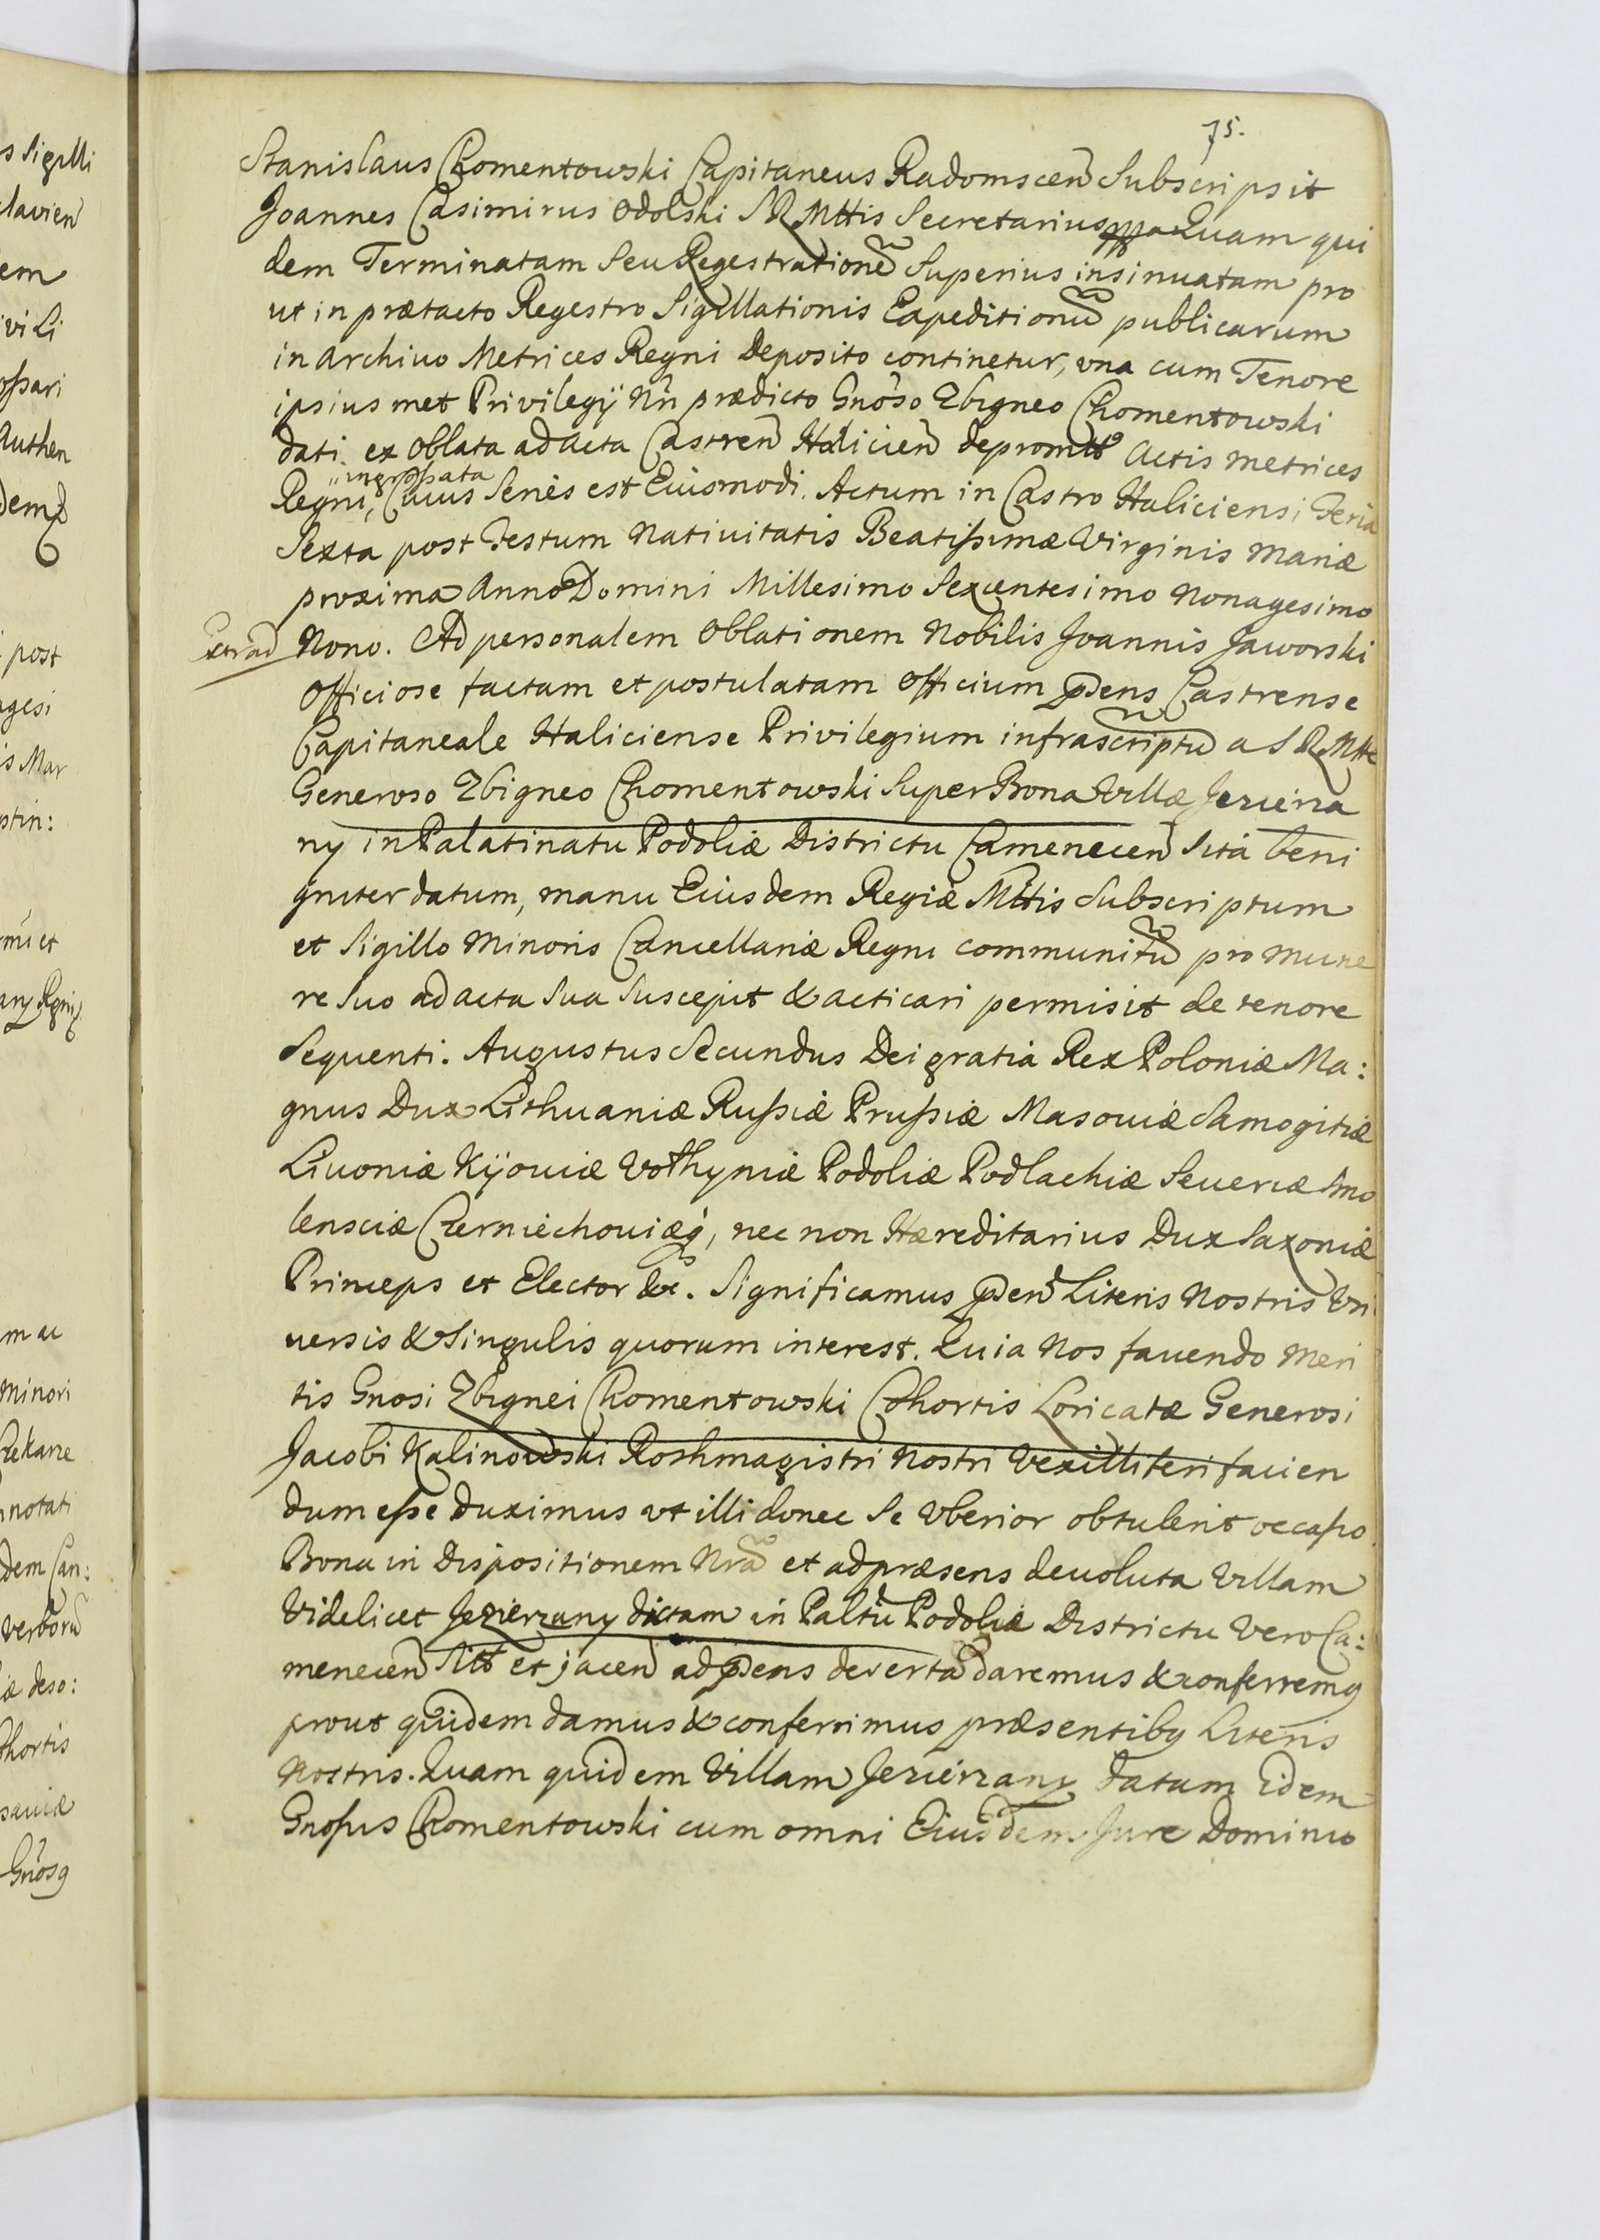 75.
Stanislaus Chomentowski Capitaneus Radomscen Subscripsit
Joannes Casimirus Odolski S R Mttis Secretarius Quam qui
dem Terminatam Seu Regestratione Superius insinuatam pro
ut in prætacto Regestro Sigillationis Expeditionu publicarum
in Archivo Metrices Regni Deposito continetur, una cum Tenore
ipsius met Privilegÿ Nri prædicto Gnoso Zbigneo Chomentowski
dati ex oblata ad acta Castren Halicien depromtt Actis metrices
ingrossata
Regni, Cuius Series est Eiusmodi. Actum in Castro Haliciensi Feria
Sexta post Festum Nativitatis Beatissimæ Virginis Mariæ
proxima Anno Domini Millesimo Sexcentesimo Nonagesimo
Extrad
Nono. Ad personalem Oblationem Nobilis Joannis Jaworski
Officiose factam et postulatam Officium pdens Castrense
Capitaneale Haliciense Privilegium infrascriptu a S R Mtte
Generoso Zbigneo Chomentowski Super Bona Villæ Jezierza
ny in Palatinatu Podoliæ Districtu Camenecen Sita beni
gniter datum, manu Eiusdem Regiæ Mttis Subscriptum
et Sigillo Minoris Cancellariæ Regni communitu pro mune
re Suo ad acta Sua Suscepit & acticari permisit de tenore
Sequenti. Augustus Secundus Dei gratia Rex Poloniæ Ma:
gnus Dux Lithuaniæ Russiæ Prussiæ Masoviæ Samogitiæ
Livoniæ Kijoviæ Volhyniæ Podoliæ Podlachiæ Severiæ Smo
lensciæ Czerniechoviæq, nec non Hæreditarius Dux Saxoniæ
Princeps et Elector &c. Significamus pden Literis Nostris Vni
versis & Singulis quorum interest. Quia Nos favendo Meri
tis Gnosi Zbignei Chomentowski Cohortis Loricatæ Generosi
Jacobi Kalinowski Rothmagistri Nostri Vexilliferi facien
dum esse duximus ut illi donec Se Vberior obtulerit occasio
Bona in Dispositionem Nra et ad præsens devoluta Villam
Videlicet Jezierzany dictam in Paltu Podoliæ Districtu vero Ca:
menecen Sitt et jacen ad pdens deserta daremus & conferremq
prout quidem damus & conferrimus præsentibq Literis
Nostris. Quam quidem Villam Jezierzany datam Idem
Gnosus Chomentowski cum omni Eiusdem Jure Dominio